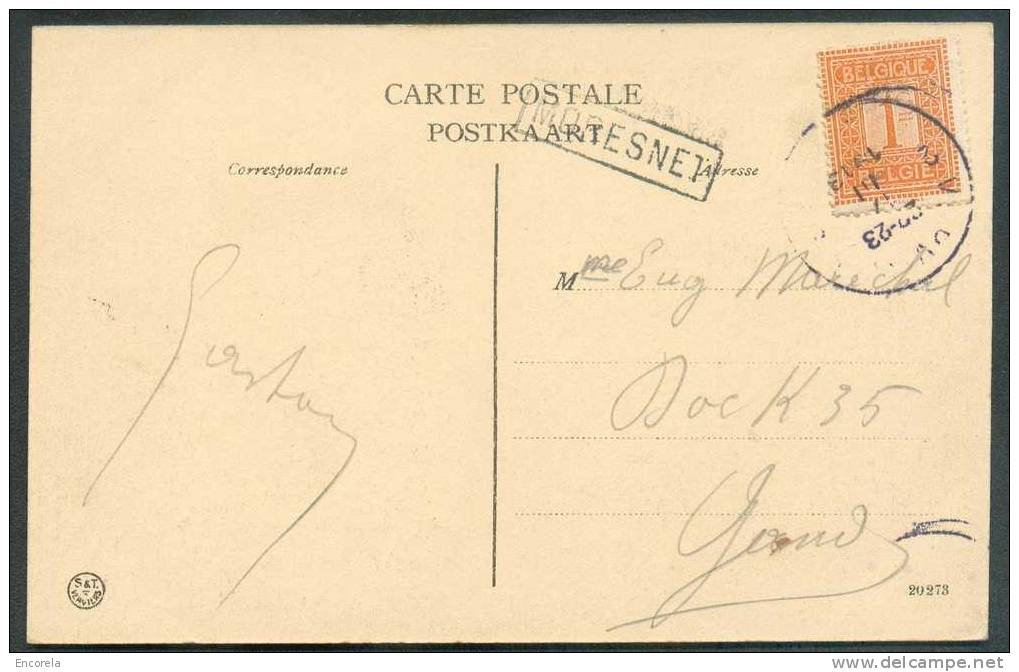 CARTE POSTALE
POSTKAART
MORESNET
Correspondance
Adresse
BELGIQUE
1
BELGIË
Mme Eug Maréchal
Dock 35
Gand
Gaston
S & T.
VERVIERS
20273
Encorela
http://www.delcampe.net